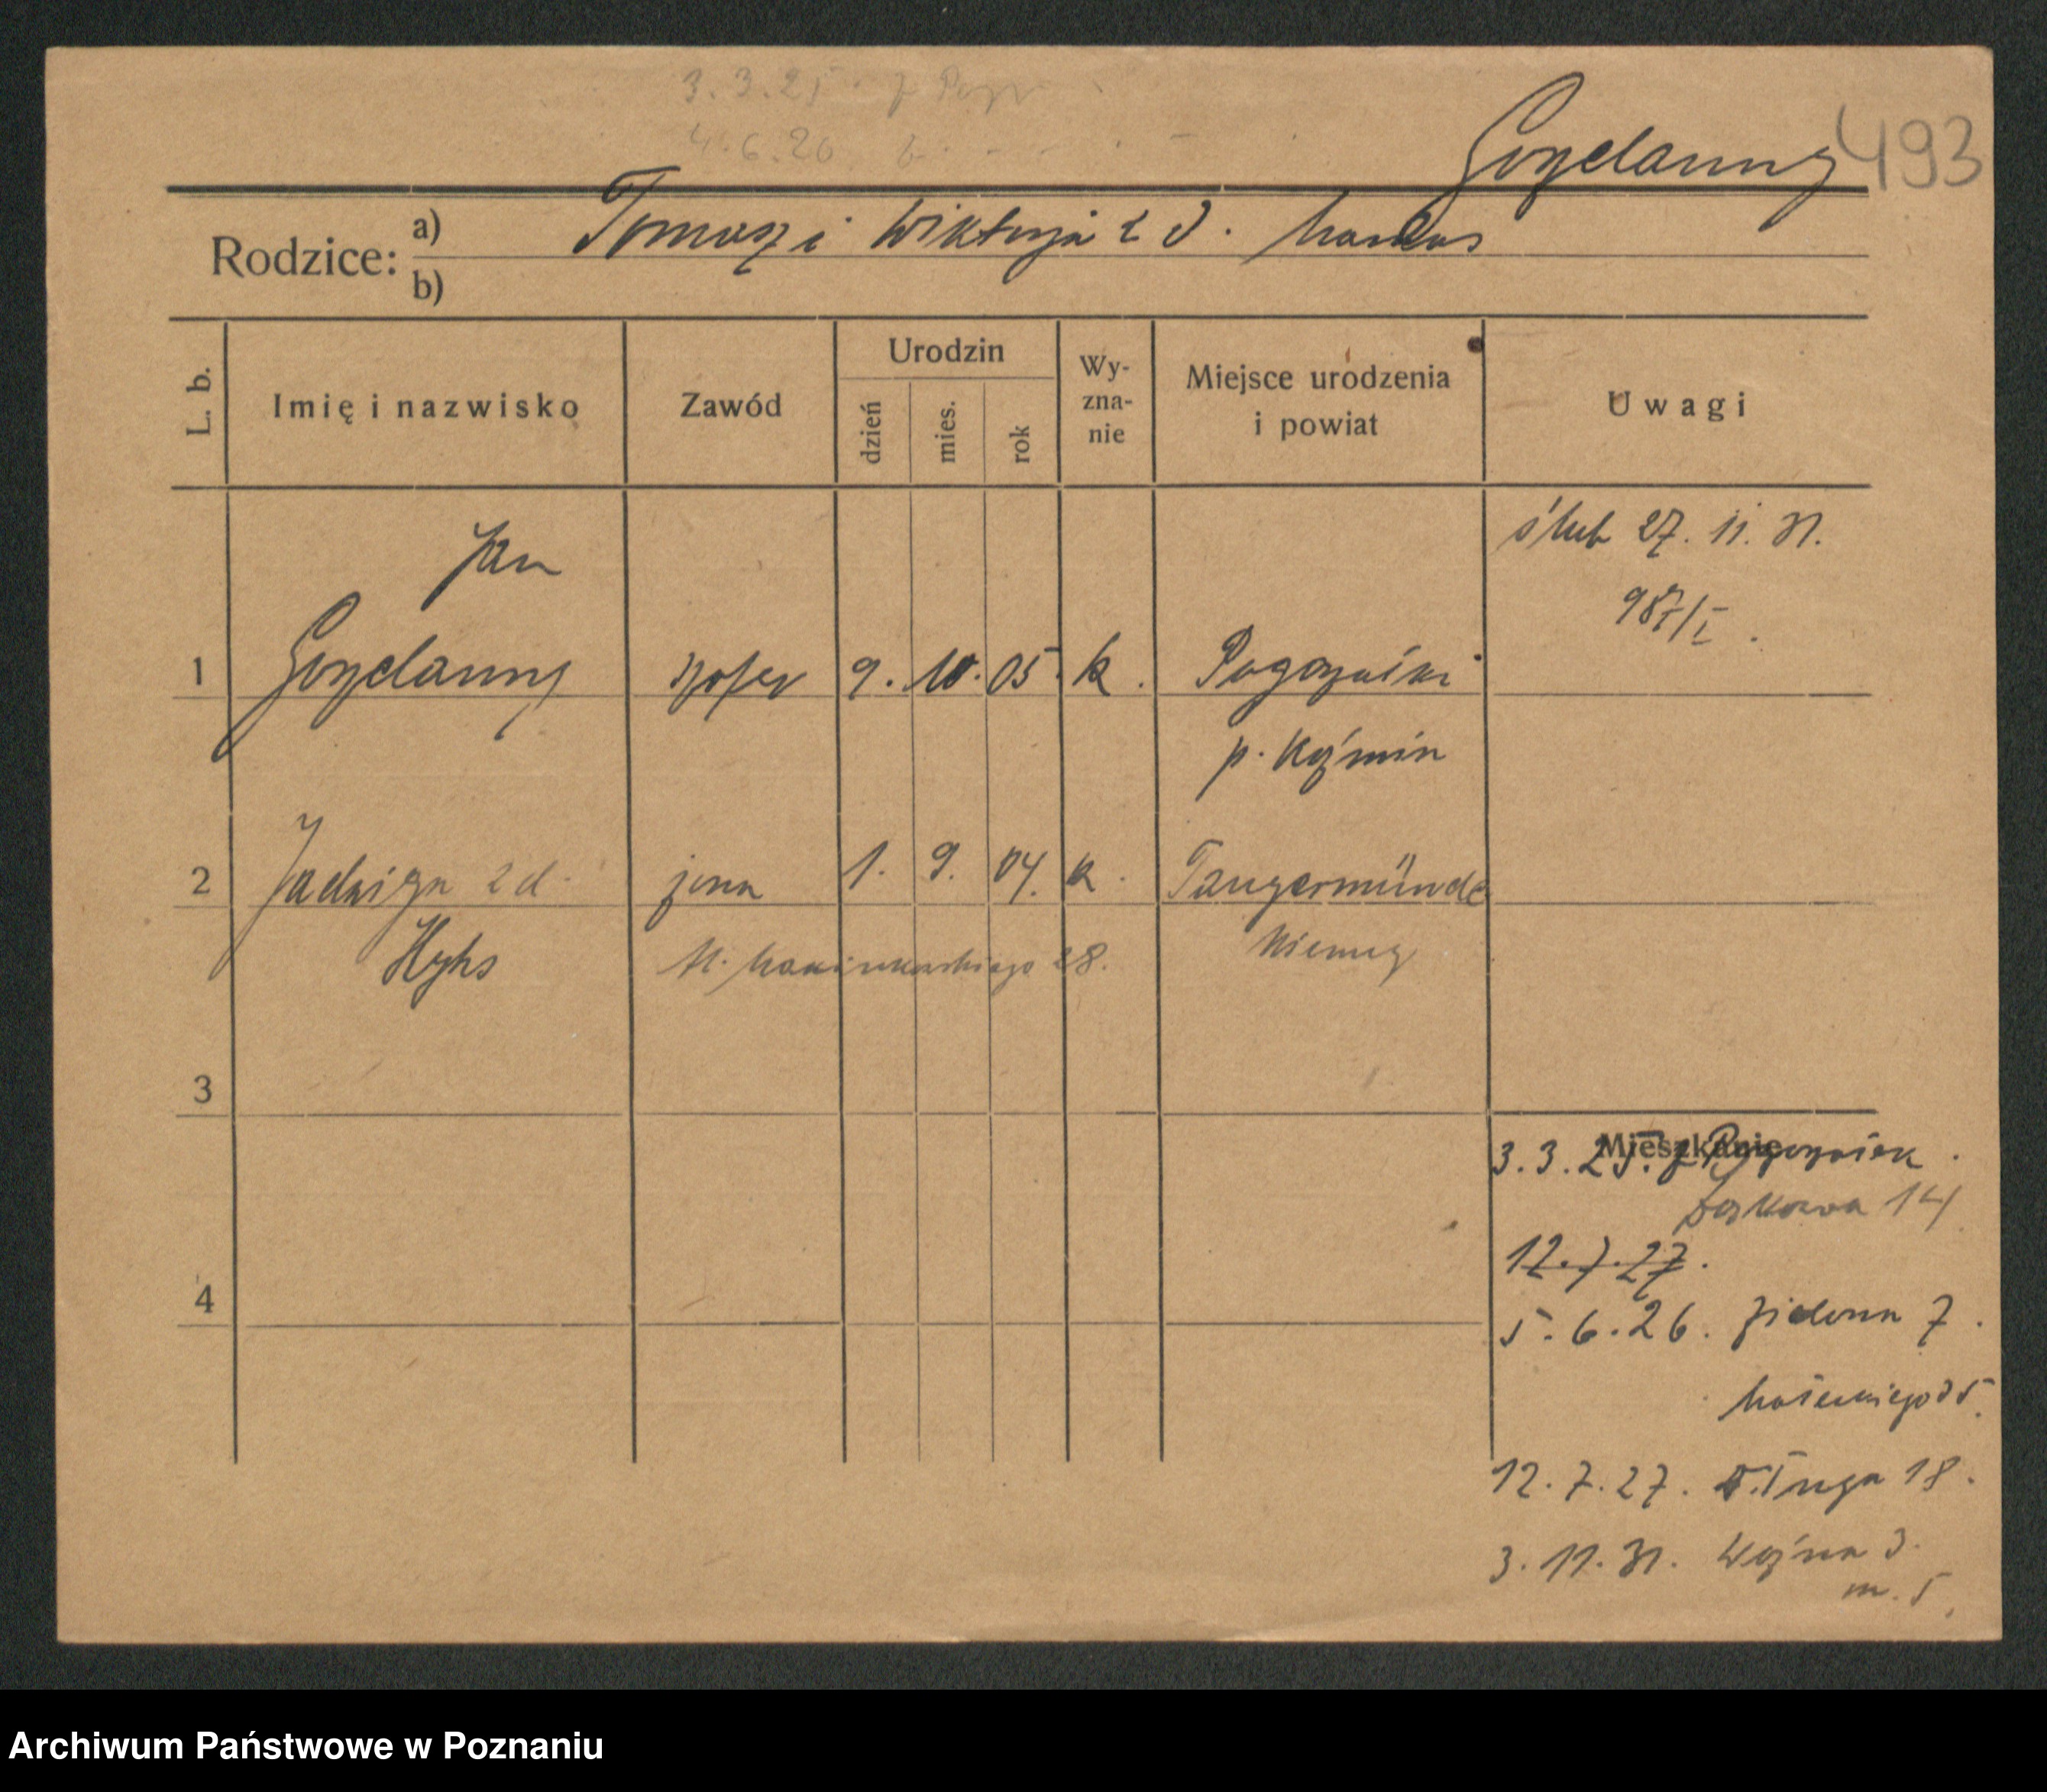 3.3.25. z Pogo
4.6.26
Gozdanny 493
Rodzice: a) Tomasz i Wiktorja z d.
b)
L. b. Imię i nazwisko Zawód Urodzin dzień mies. rok Wy-zna-nie Miejsce urodzenia i powiat Uwagi
ślub 27. 11. 31.
987/I.
Jan
1 Gozdanny szofer 9. 10. 05. k. Pogorzałki
p. Koźmin
2 Jadwiga z d. żona 1. 9. 04. k. Tangermünde
Hyhs 28. Niemcy
3
Mieszkanie
3.3.25. z
14
12.7.27.
4
5.6.26. Zielona 7.
35.
12.7.27. Długa 18.
3.11.31. Woźna 3.
m. 5.
Archiwum Państwowe w Poznaniu